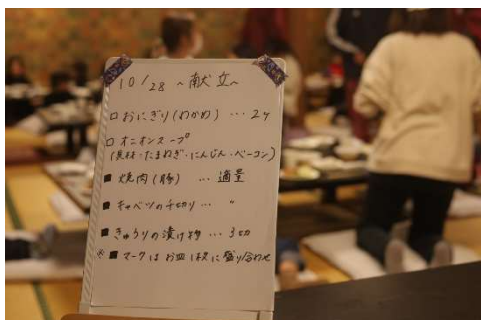 10/28 〜献立〜
□ おにぎり(わかめ) … 2ケ
□ オニオンスープ
(具材・たまねぎ・にんじん・ベーコン)
■ 焼肉(豚) … 適量
■ キャベツの千切り … 〃
■ きゅうりの漬け物 … 3切
※ ■ マークはお皿1枚に盛り合わせ